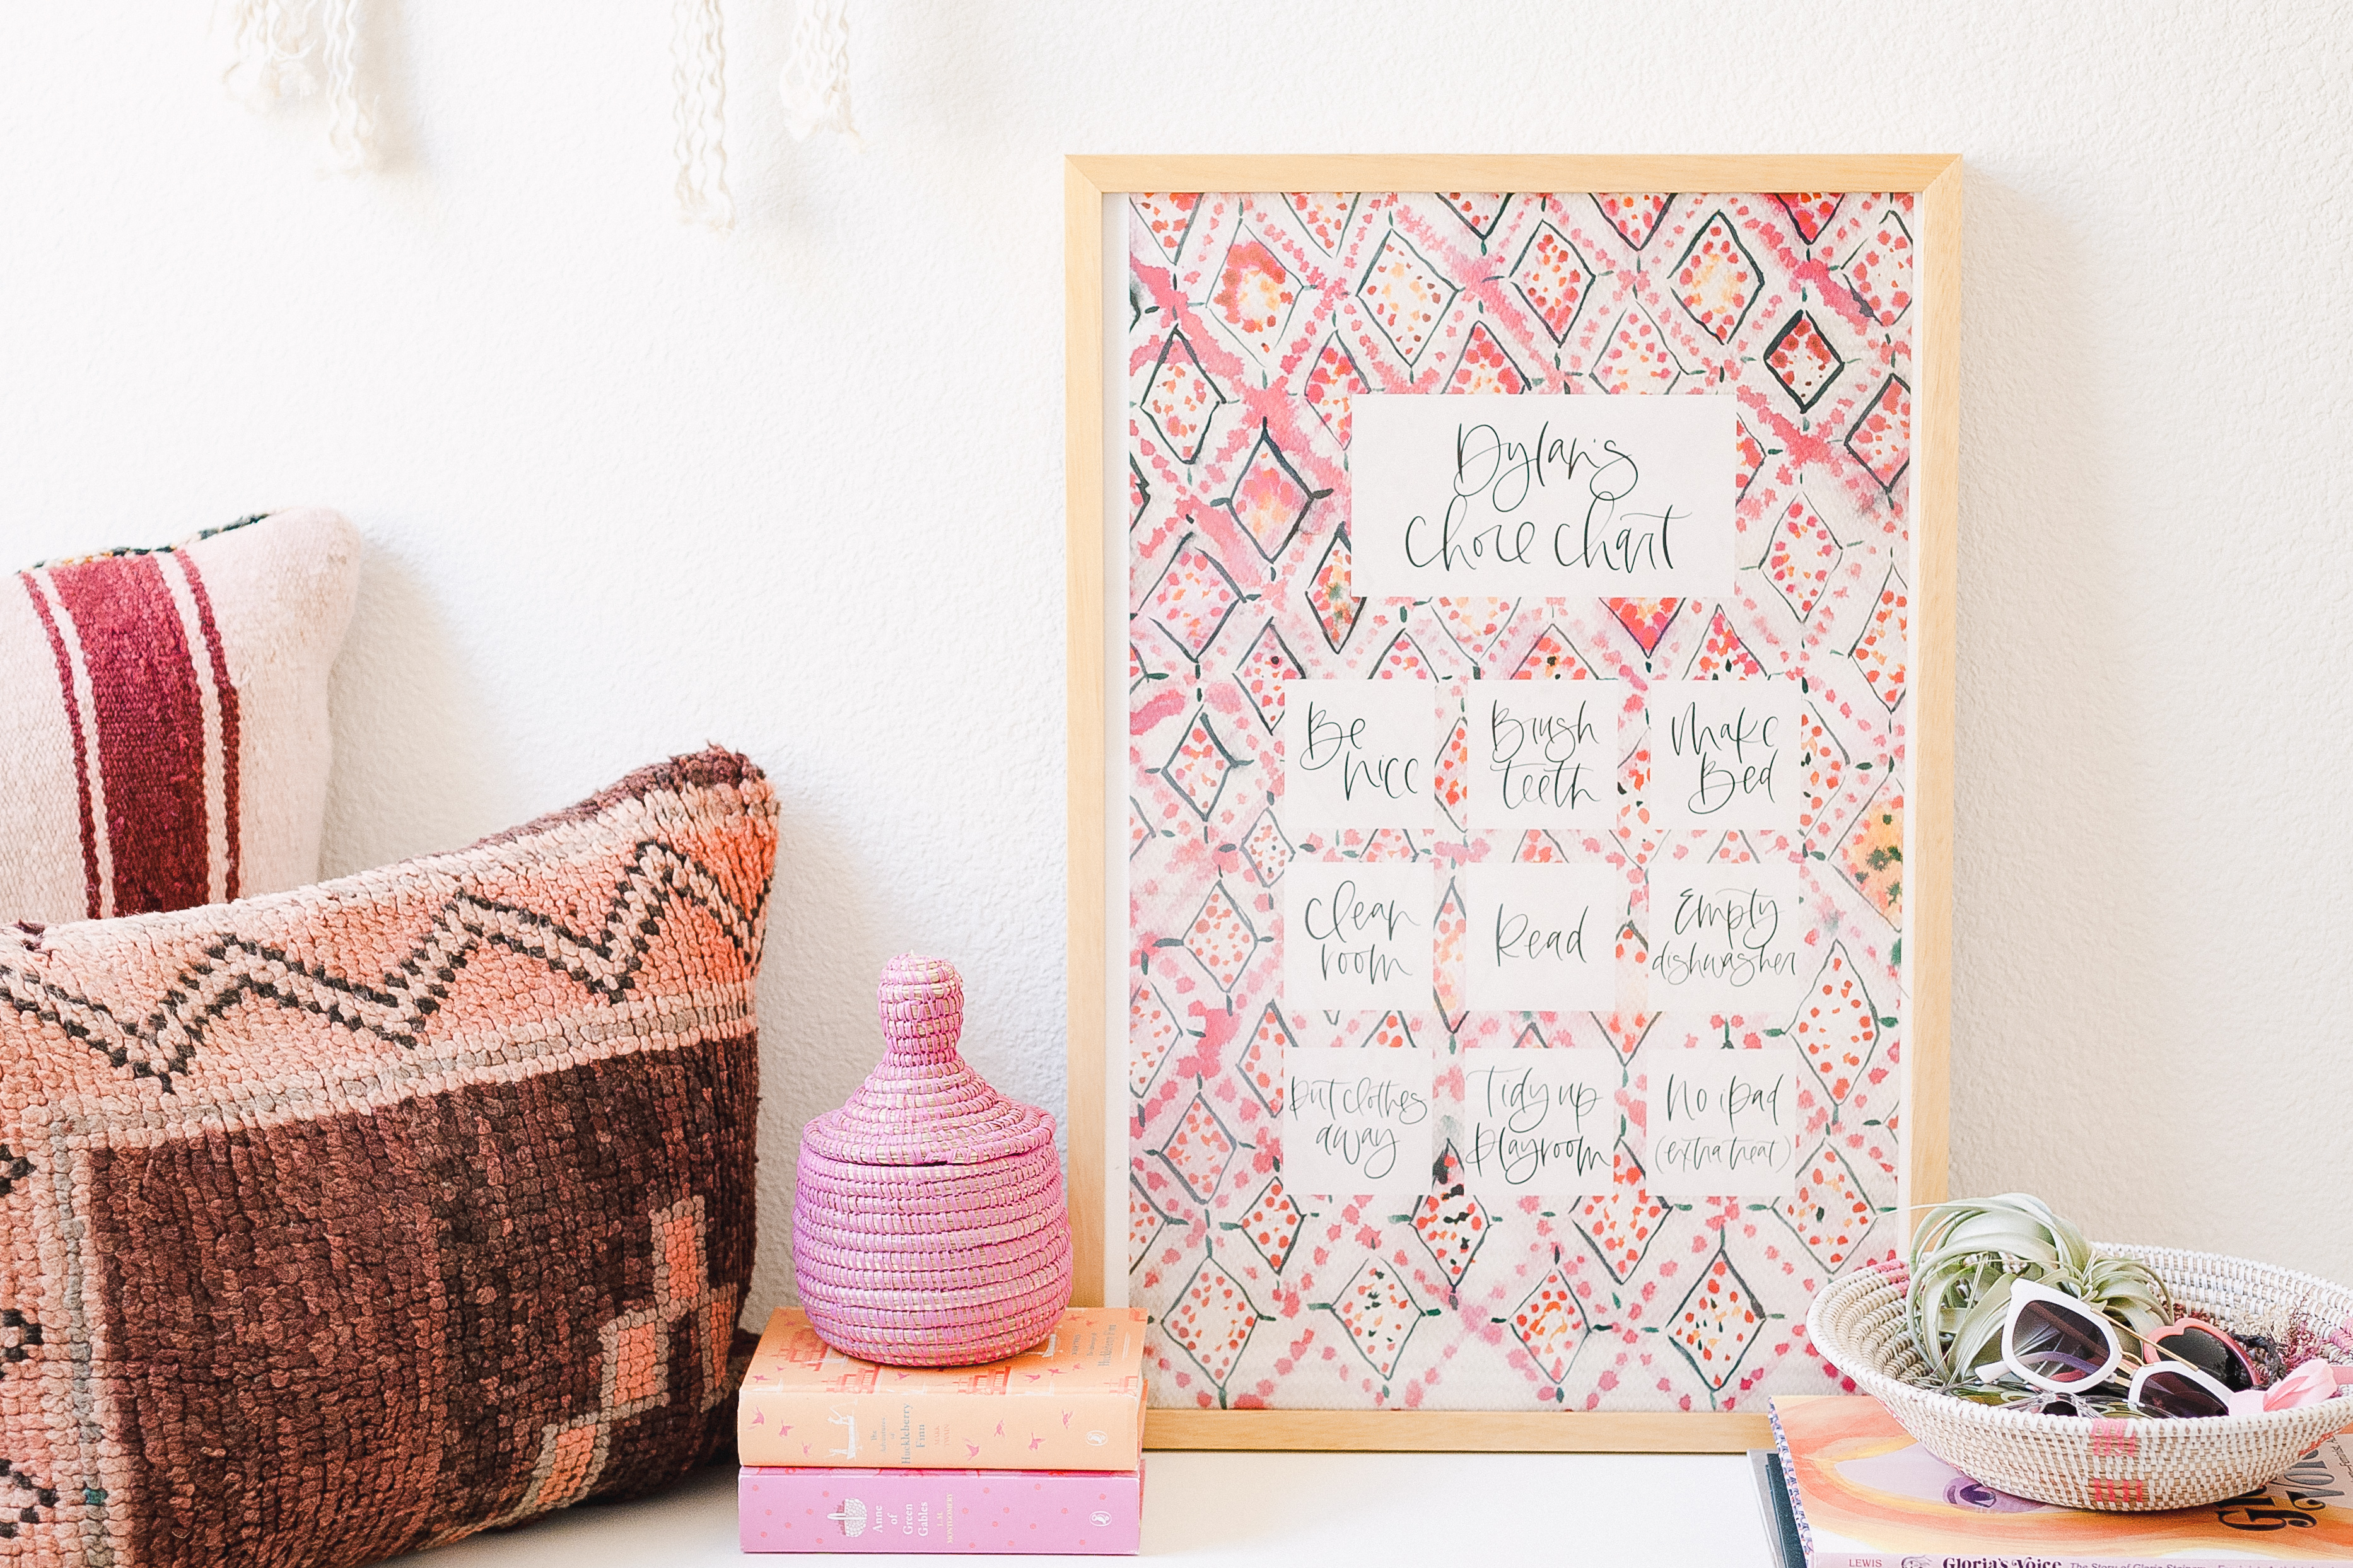 Dylan's
Chore Chart
Be
nice
Brush
teeth
Make
Bed
Clean
room
Read
Empty
dishwasher
Put clothes
away
Tidy up
playroom
No iPad
(extra treat)
The
Adventures
of
Huckleberry
Finn
MARK
TWAIN
Anne
of
Green
Gables
L.M.
MONTGOMERY
LEWIS
Gloria's Voice